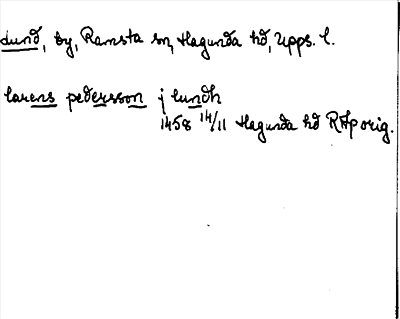 Lund, by, Ramsta sn, Hagunda hd, Upps. l.
larens pedersson j lundh
1458 14/11 Hagunda hd RAp orig.